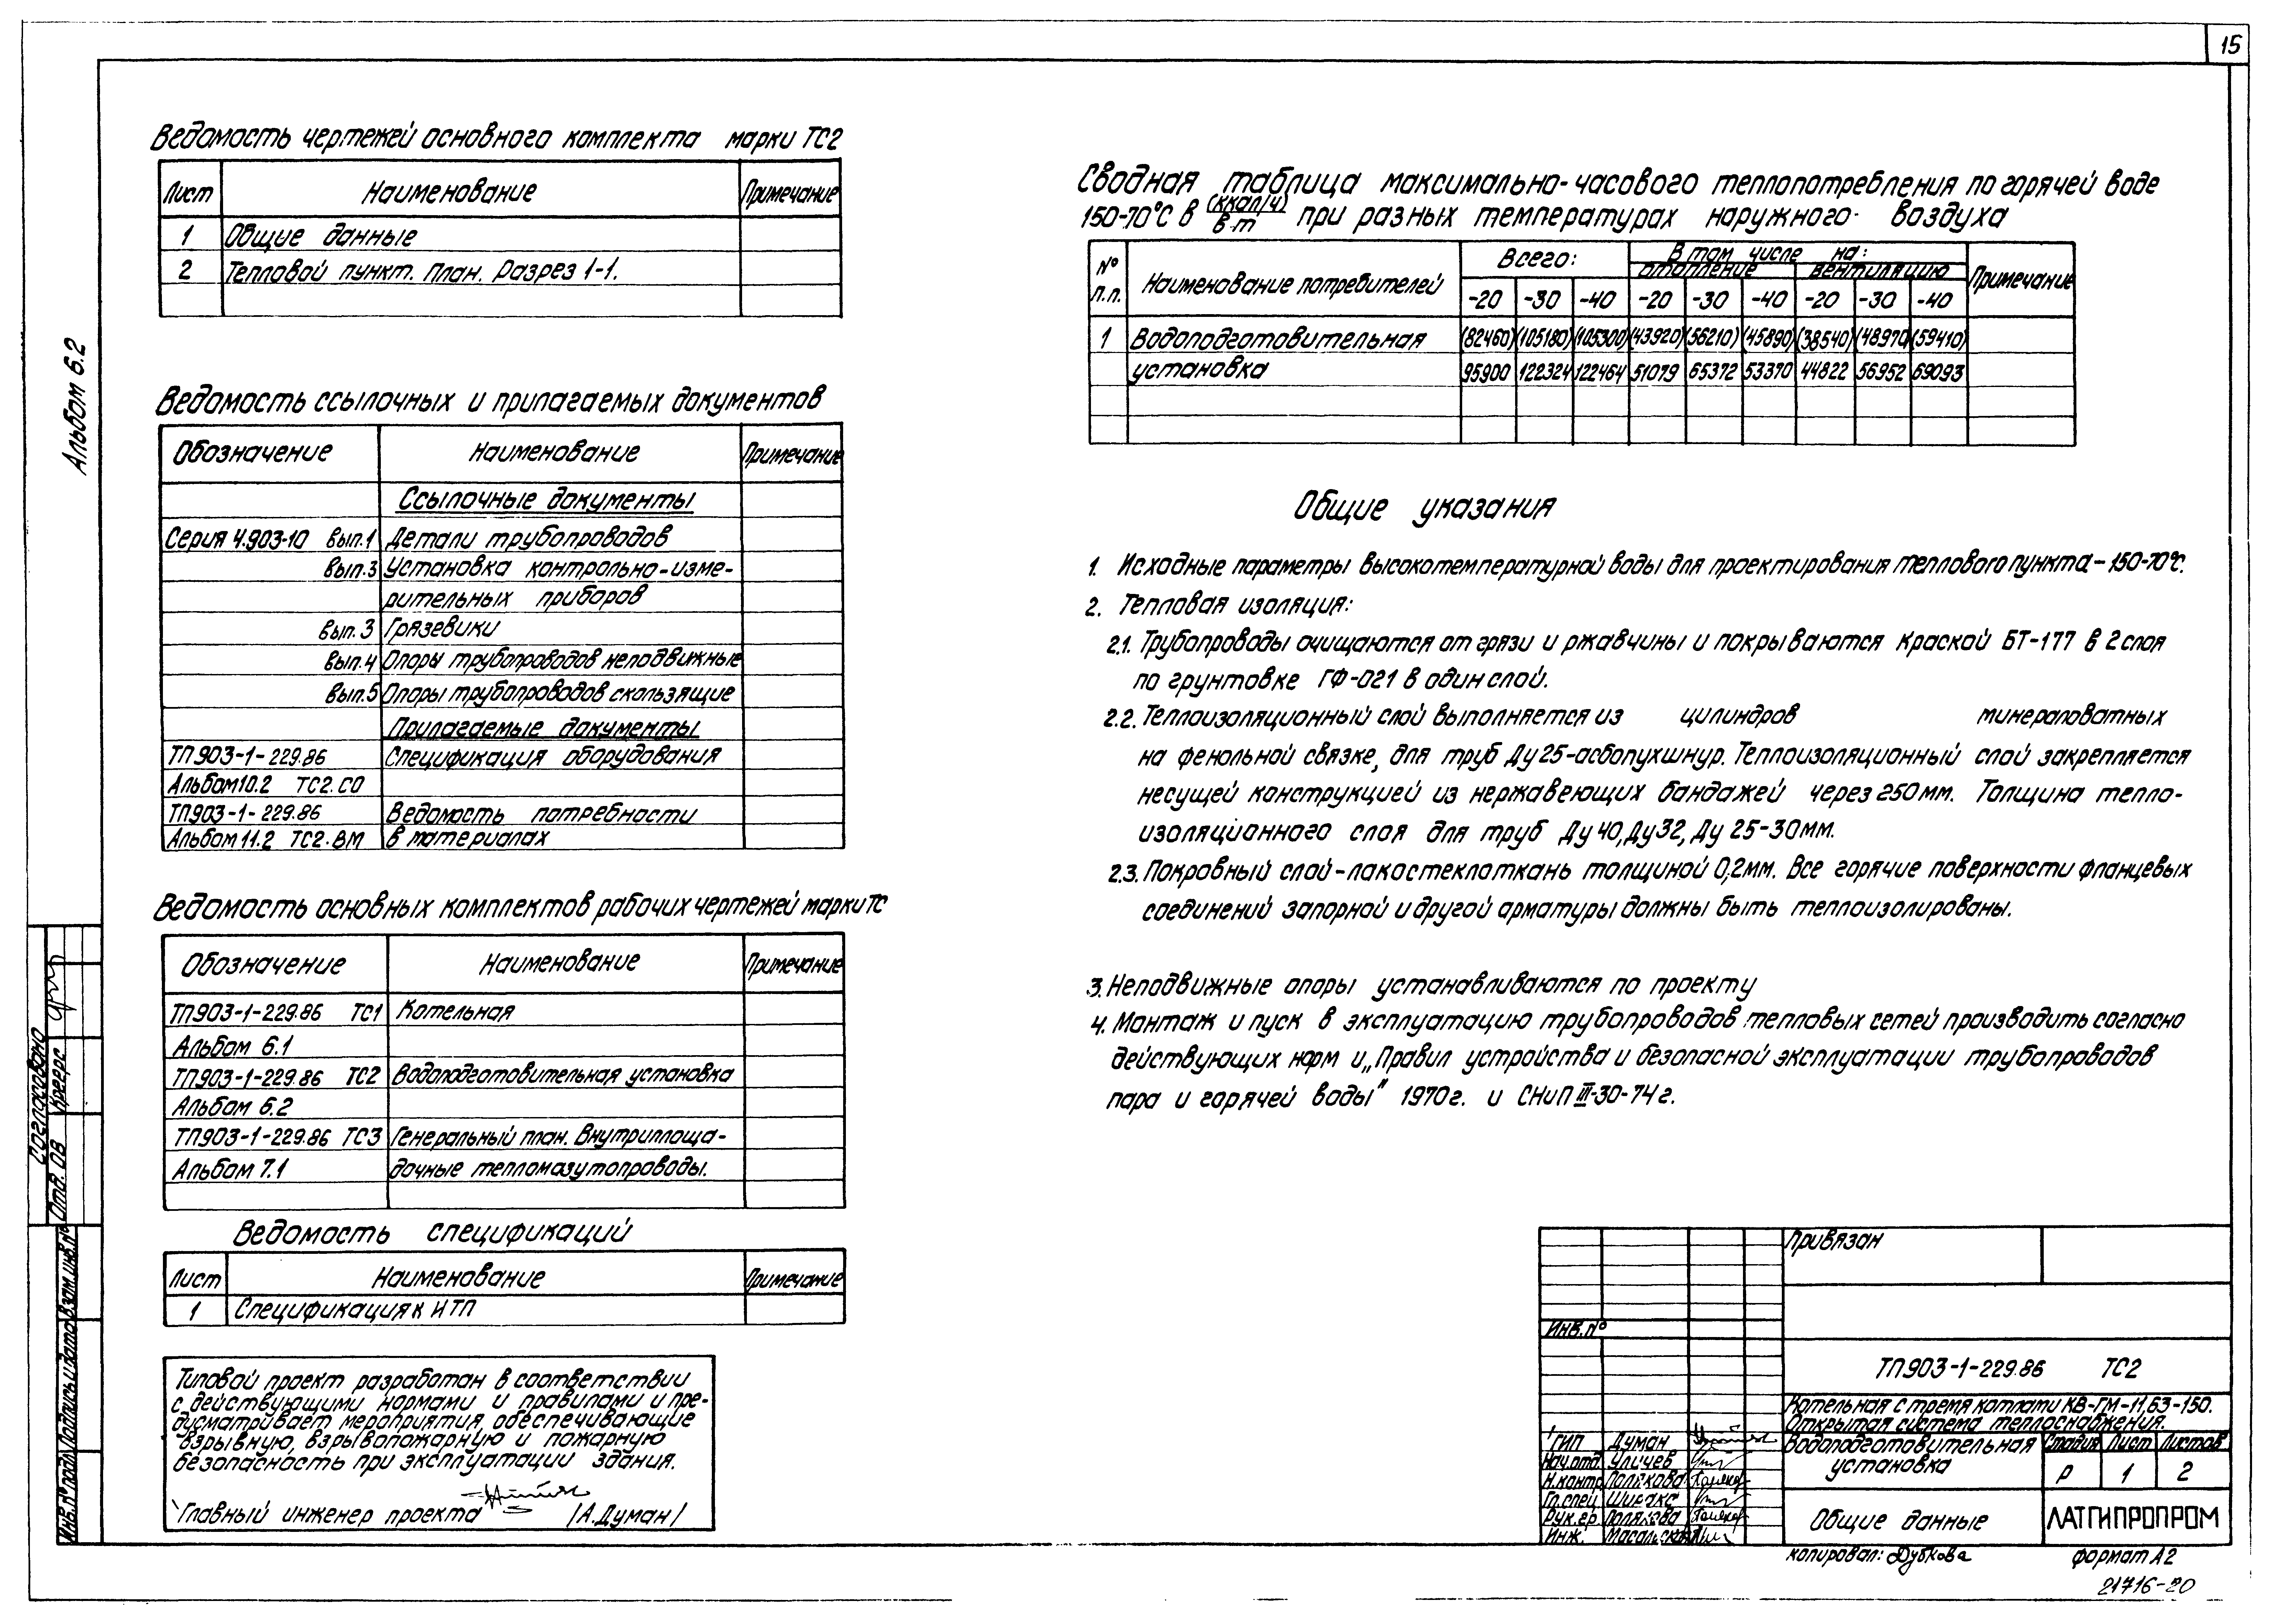 15
Альбом 6.2
Ведомость чертежей основного комплекта марки ТС2
Лист Наименование Примечание
1 Общие данные
2 Тепловой пункт. План. Разрез 1-1.
Ведомость ссылочных и прилагаемых документов
Обозначение Наименование Примечание
Ссылочные документы
Серия 4.903-10 вып.1 Детали трубопроводов
вып.3 Установка контрольно-изме-
рительных приборов
вып.3 Грязевики
вып.4 Опоры трубопроводов неподвижные
вып.5 Опоры трубопроводов скользящие
Прилагаемые документы
ТП903-1-229.86 Спецификация оборудования
Альбом10.2 ТС2.СО
ТП903-1-229.86 Ведомость потребности
Альбом 11.2 ТС2.ВМ в материалах
Ведомость основных комплектов рабочих чертежей марки ТС
Обозначение Наименование Примечание
ТП903-1-229.86 ТС1 Котельная
Альбом 6.1
ТП903-1-229.86 ТС2 Водоподготовительная установка
Альбом 6.2
ТП903-1-229.86 ТС3 Генеральный план. Внутриплоща-
Альбом 7.1 дочные тепломазутопроводы.
Ведомость спецификаций
Лист Наименование Примечание
1 Спецификация к ИТП
Типовой проект разработан в соответствии
с действующими нормами и правилами и пре-
дусматривает мероприятия, обеспечивающие
взрывную, взрывопожарную и пожарную
безопасность при эксплуатации здания.
Главный инженер проекта /А.Думан/
Сводная таблица максимально-часового теплопотребления по горячей воде
150-70°С в (ккал/ч)/вт при разных температурах наружного воздуха
№ п.п. Наименование потребителей Всего: В том числе на: Примечание
отопление вентиляцию
-20 -30 -40 -20 -30 -40 -20 -30 -40
1 Водоподготовительная (82460) (105180) (105300) (43920) (56210) (45890) (38540) (48970) (59410)
установка 95900 122324 122464 51079 65372 53370 44822 56952 69093
Общие указания
1. Исходные параметры высокотемпературной воды для проектирования теплового пункта – 150-70°С.
2. Тепловая изоляция:
2.1. Трубопроводы очищаются от грязи и ржавчины и покрываются краской БТ-177 в 2 слоя
по грунтовке ГФ-021 в один слой.
2.2. Теплоизоляционный слой выполняется из цилиндров минераловатных
на фенольной связке, для труб Ду25-асбопухшнур. Теплоизоляционный слой закрепляется
несущей конструкцией из нержавеющих бандажей через 250мм. Толщина тепло-
изоляционного слоя для труб Ду 40, Ду32, Ду 25-30мм.
2.3. Покровный слой-лакостеклоткань толщиной 0,2мм. Все горячие поверхности фланцевых
соединений запорной и другой арматуры должны быть теплоизолированы.
3. Неподвижные опоры устанавливаются по проекту
4. Монтаж и пуск в эксплуатацию трубопроводов тепловых сетей производить согласно
действующих норм и „Правил устройства и безопасной эксплуатации трубопроводов
пара и горячей воды" 1970г. и СНиП III-30-74г.
Согласовано
Отв. ОВ Креерс
Инв.№подл. Подпись и дата Взам.инв.№
Привязан
Инв.№
ТП903-1-229.86 ТС2
Котельная с тремя котлами КВ-ГМ-11,63-150.
Открытая система теплоснабжения.
ГИП Думан
Нач.отд. Уличев
Н.контр. Полякова
Гл.спец.
Рук.гр. Полякова
Инж.
Водоподготовительная Стадия Лист Листов
установка Р 1 2
Общие данные ЛАТГИПРОПРОМ
копировал: Дубкова формат А2
21716-20